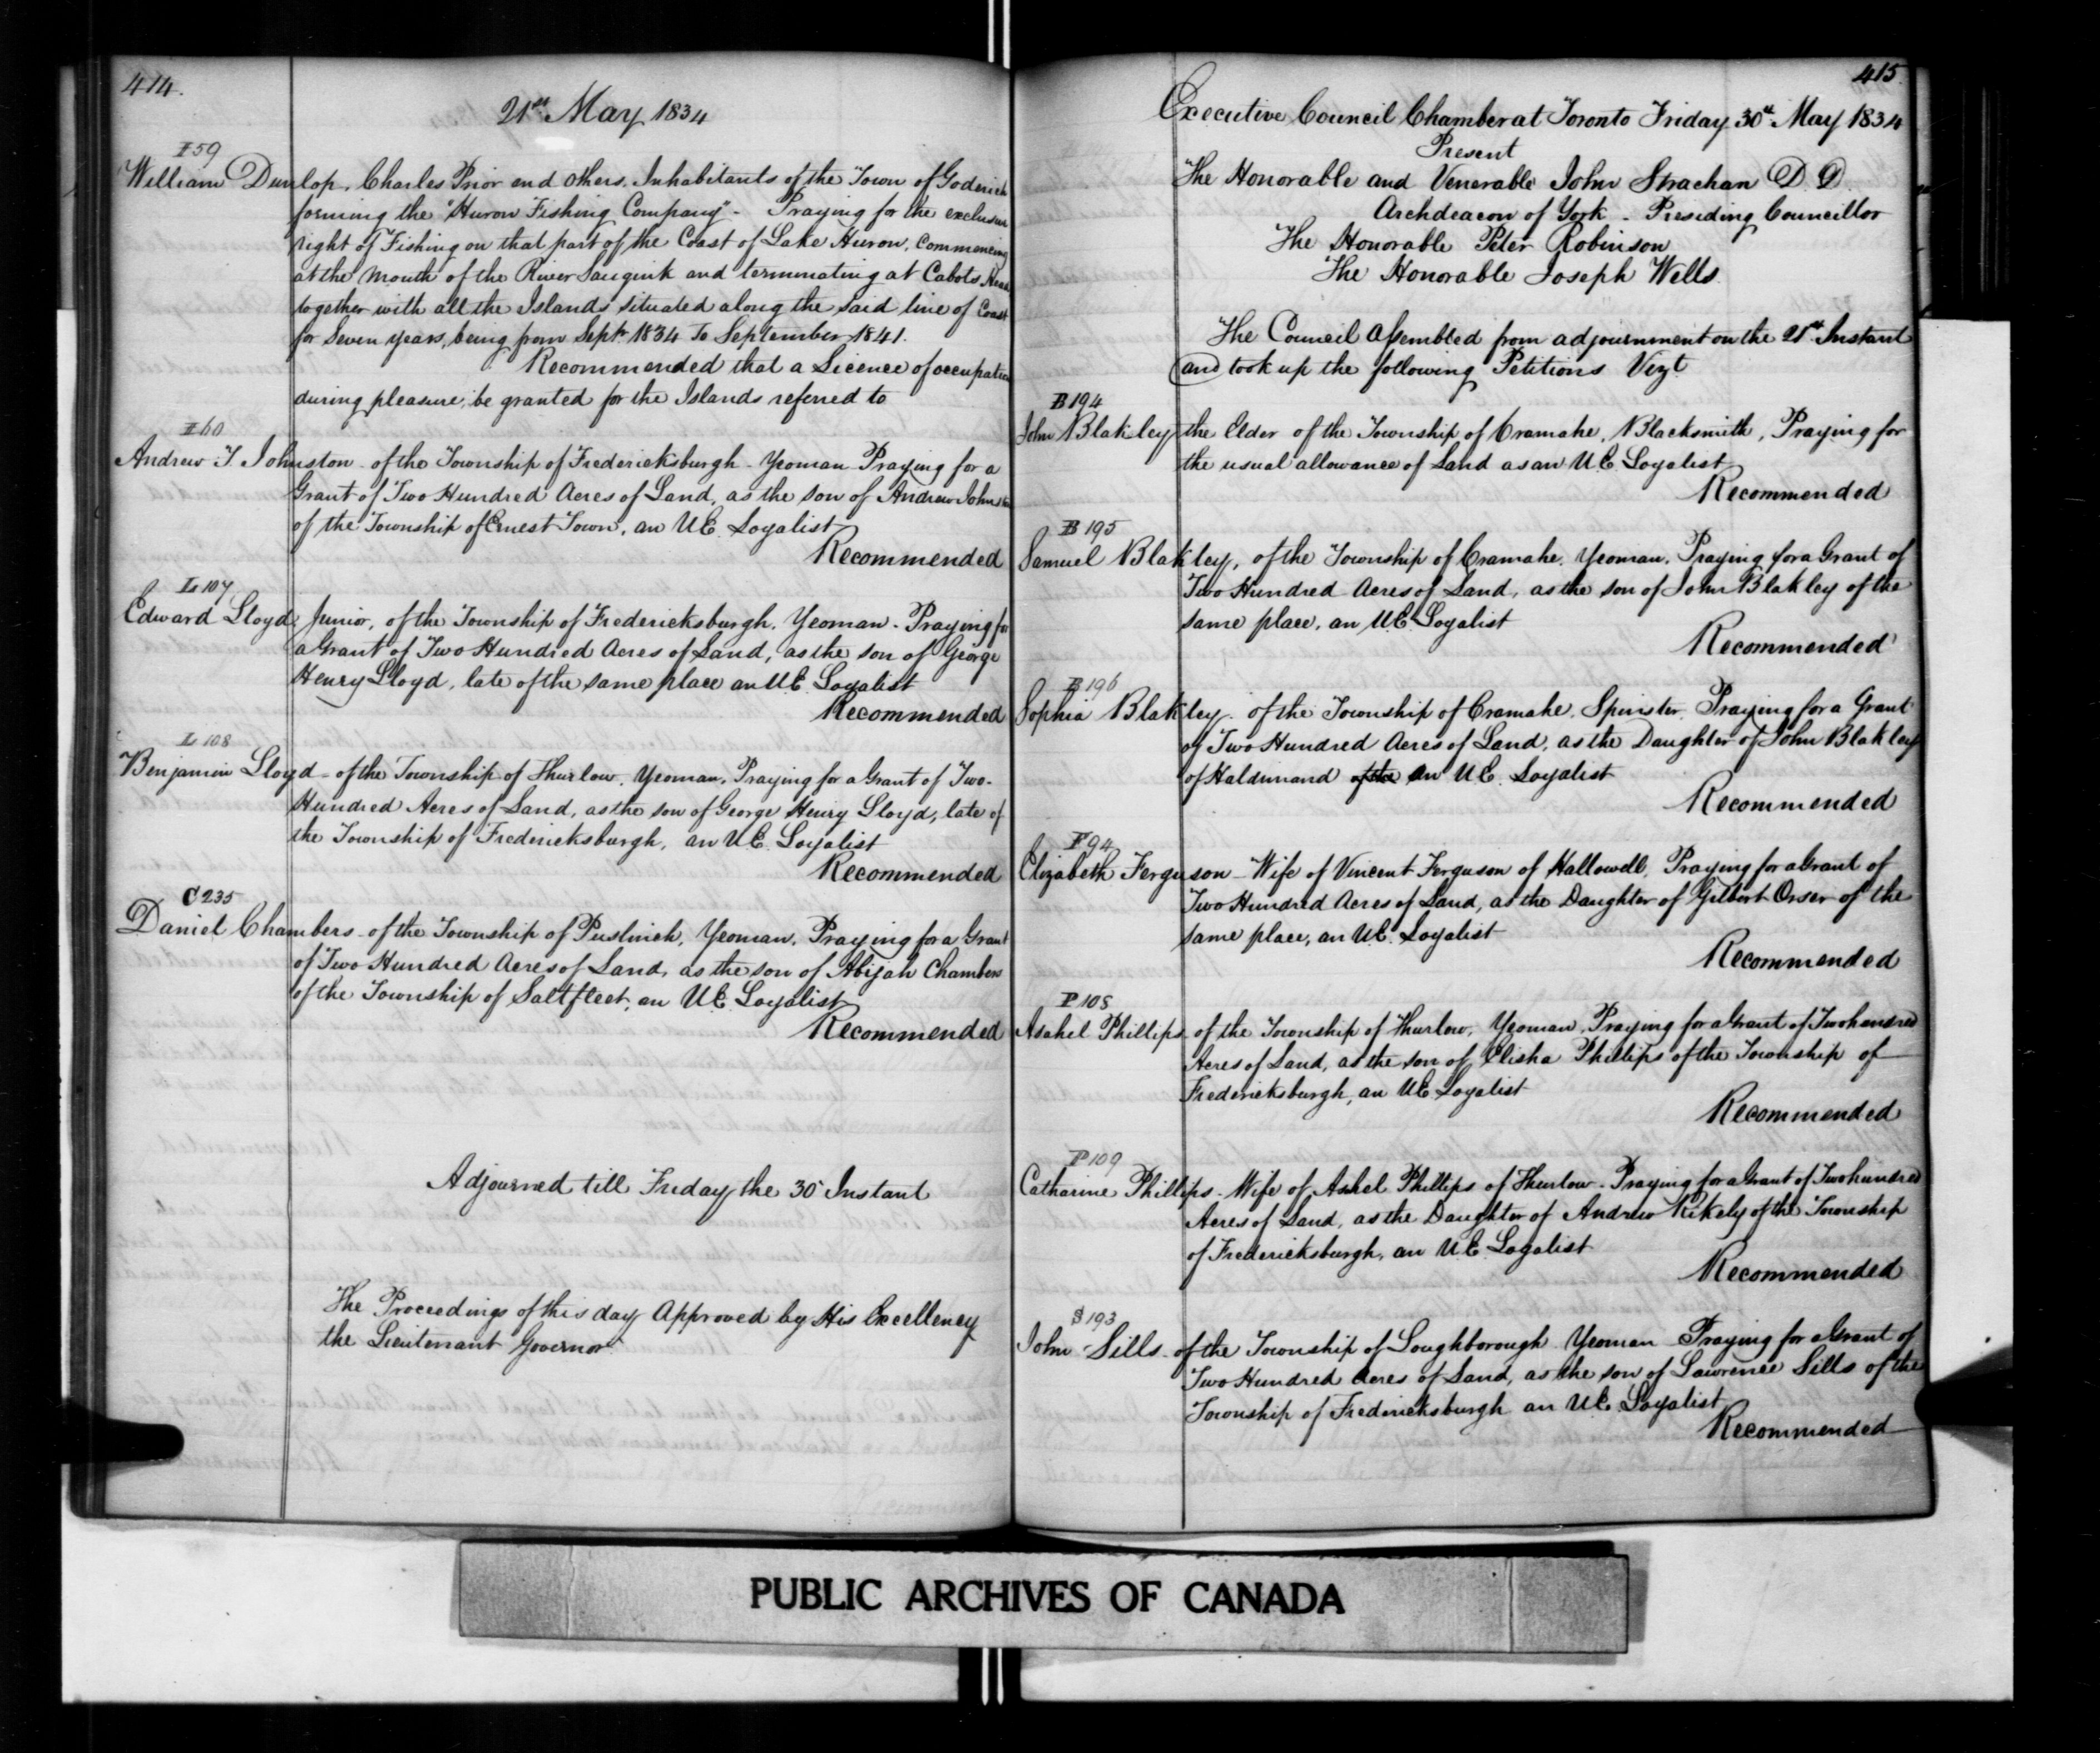 414.
21st May 1834
I 59
William Dunlop, Charles Prior and others. Inhabitants of the Town of Goderich
forming the "Huron Fishing Company" - Praying for the exclusive
right of Fishing on that part of the Coast of Lake Huron, Commencing
at the Mouth of the River Saugink and terminating at Cabots Head
together with all the Islands situated along the said line of Coast
for Seven years, being from Septr 1834 To September 1841.
Recommended that a Licence of occupation
during pleasure, be granted for the Islands referred to
I 60
Andrew T Johnston of the Township of Fredericksburgh - Yeoman Praying for a
Grant of Two Hundred Acres of Land, as the son of Andrew Johnston
of the Township of Ernest Town, an U.E. Loyalist
Recommended
L 107
Edward Lloyd, Junior, of the Township of Fredericksburgh, Yeoman - Praying for
a Grant of Two Hundred Acres of Land, as the son of George
Henry Lloyd, late of the same place an U.E. Loyalist
Recommended
L 108
Benjamin Lloyd - of the Township of Thurlow, Yeoman, Praying for a Grant of Two-
Hundred Acres of Land, as the son of George Henry Lloyd, late of
the Township of Fredericksburgh, an U.E. Loyalist
Recommended
C 235
Daniel Chambers - of the Township of Puslinch, Yeoman, Praying for a Grant
of Two Hundred Acres of Land, as the son of Abijah Chambers
of the Township of Saltfleet, an U.E. Loyalist
Recommended
Adjourned till Friday the 30 Instant
The Proceedings of this day Approved by His Excellency
the Lieutenant Governor
415
Executive Council Chamber at Toronto Friday 30th May 1834
Present
The Honorable and Venerable John Strachan D.D.
Archdeacon of York - Presiding Councillor
The Honorable Peter Robinson
The Honorable Joseph Wells
The Council Assembled from adjournment on the 21st Instant
and took up the following Petitions Vizt
B 194
John Blakley the Elder of the Township of Cramahe, Blacksmith, Praying for
the usual allowance of Land as an U.E. Loyalist
Recommended
B 195
Samuel Blakley, of the Township of Cramahe, Yeoman, Praying for a Grant of
Two Hundred Acres of Land, as the son of John Blakley of the
same place, an U.E. Loyalist
Recommended
B 196
Sophia Blakley - of the Township of Cramahe, Spinster, Praying for a Grant
of Two Hundred Acres of Land, as the Daughter of John Blakley
of Haldimand of the an U.E. Loyalist
Recommended
F 94
Elizabeth Ferguson - Wife of Vincent Ferguson of Hallowell, Praying for a Grant of
Two Hundred Acres of Land, as the Daughter of Gilbert Orser of the
same place, an U.E. Loyalist
Recommended
P 108
Asahel Phillips of the Township of Thurlow, Yeoman, Praying for a Grant of Two hundred
Acres of Land, as the son of Elisha Phillips of the Township of
Fredericksburgh, an U.E. Loyalist
Recommended
P 109
Catharine Phillips - Wife of Ashel Phillips of Thurlow - Praying for a Grant of Two hundred
Acres of Land, as the Daughter of Andrew Rikely of the Township
of Fredericksburgh, an U.E. Loyalist
Recommended
S 193
John Sills - of the Township of Loughborough Yeoman Praying for a Grant of
Two Hundred Acres of Land, as the son of Lawrence Sills of the
Township of Fredericksburgh an U.E. Loyalist
Recommended
PUBLIC ARCHIVES OF CANADA